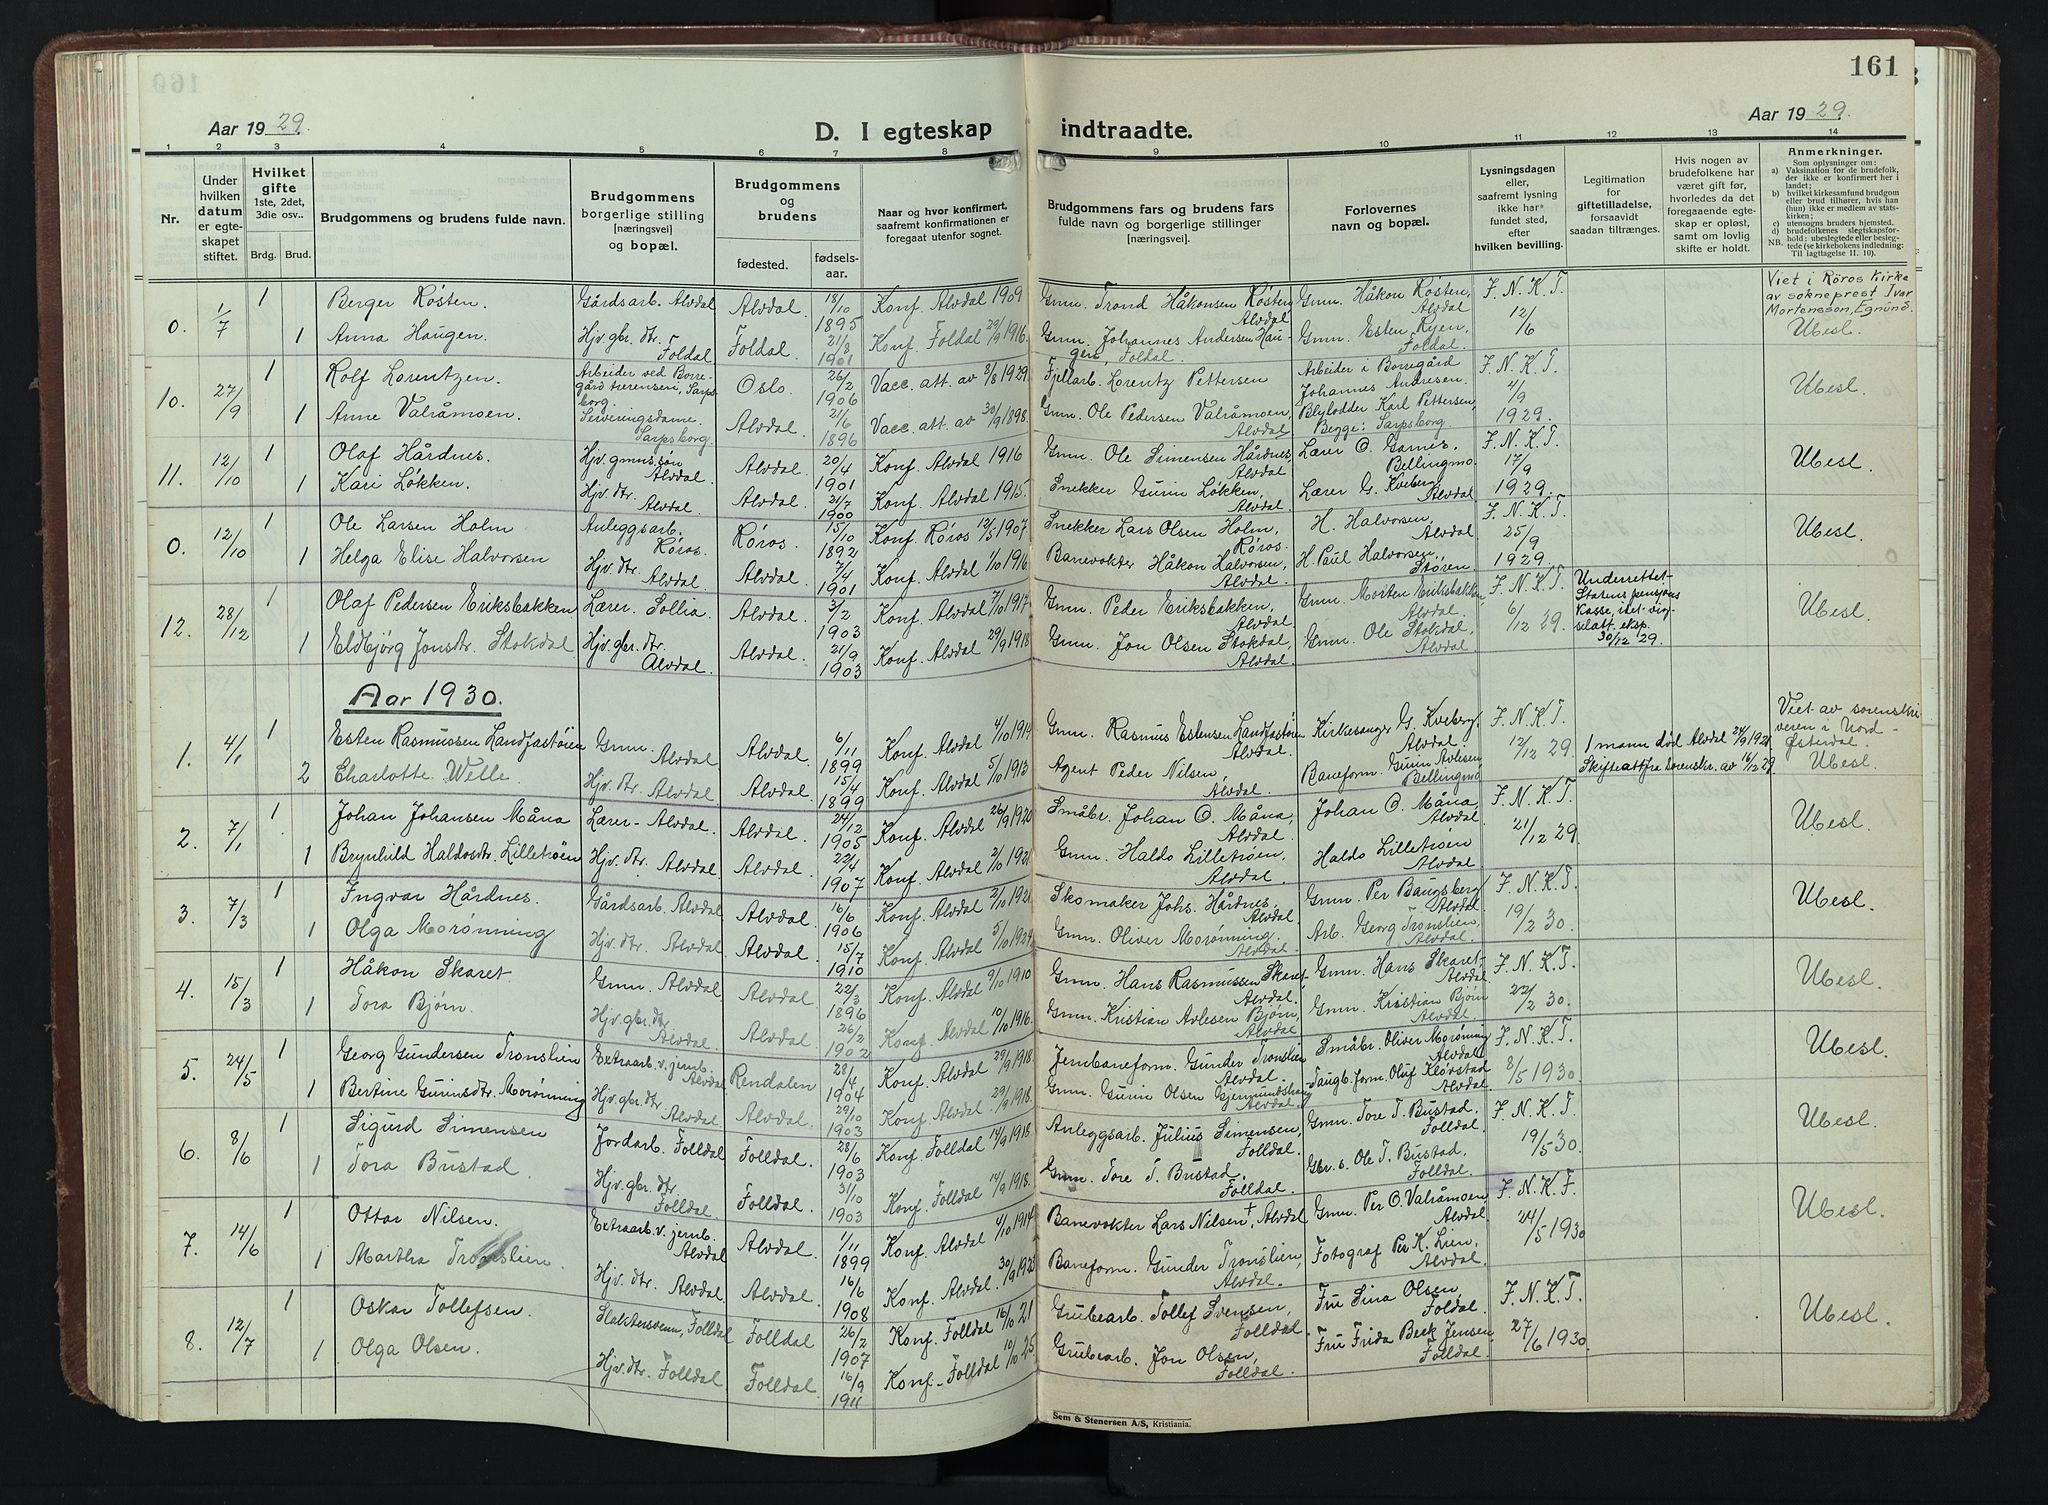 161
Aar 1929.
D. I egteskap indtraadte.
Aar 1929.
1 2 3 4 5 6 7 8 9 10 11 12 13 14
Nr.
Under hvilken datum er egteskapet stiftet.
Hvilket gifte 1ste, 2det, 3die osv..
Brdg. Brud.
Brudgommens og brudens fulde navn.
Brudgommens borgerlige stilling [næringsvei] og bopæl.
Brudgommens og brudens
fødested. fødselsaar.
Naar og hvor konfirmert, saafremt konfirmationen er foregaat utenfor sognet.
Brudgommens fars og brudens fars fulde navn og borgerlige stillinger [næringsvei]
Forlovernes navn og bopæl.
Lysningsdagen eller, saafremt lysning ikke har fundet sted, efter hvilken bevilling.
Legitimation for giftetilladelse, forsaavidt saadan tiltrænges.
Hvis nogen av brudefolkene har været gift før, hvorledes da det foregaaende egteskap er opløst, samt om lovlig skifte er holdt.
Anmerkninger.
Som oplysninger om:
a) Vaksination for de brudefolk, der ikke er konfirmert her i landet;
b) hvilket kirkesamfund brudgom eller brud tilhører, hvis han (hun) ikke er medlem av statskirken;
c) utensogns bruders hjemsted.
d) brudefolkenes slegtskapsforhold: ubeslegtede eller beslegtede (se kirkebokens indledning: Til iagttagelse II. 10).
NB.
0. 1/7 1 Berger Røsten. Gårdsarb. Alvdal Alvdal. 18/10 1895 Konf. Alvdal 1909 Gmn. Trond Håkonsen Røsten, Alvdal Gmn. Håkon Røsten, Alvdal F. N. K. T. 12/6 Viet i Röros Kirke av sokneprest Ivar Mortensson, Egnund.
1 Anna Haugen. Hjv. gbr. dtr. Foldal Foldal. 21/8 1901 Konf. Foldal 29/9 1916. Gmn. Johannes Andersen Haugen, Foldal. Gmn. Esten Kjen, Foldal. Ubesl.
10. 27/9 1 Rolf Lorentzen. Arbeider ved Borregård, Sarpsborg. Oslo. 26/2 1906 Vacc. att. av 8/8 1929. Fjellarb. Lorentz Pettersen Arbeider i Borregård Johannes Andresen. F. N. K. T. 4/9 1929. Ubesl.
1 Anne Valråmoen. Serveringsdame. Sarpsborg. Alvdal. 21/6 1896 Vacc. att. av 30/9 1898. Gmn. Ole Pedersen Valråmoen, Alvdal Blylodder Karl Pettersen, Begge: Sarpsborg.
11. 12/10 1 Olaf Hårdnes. Hjv. gmns. søn Alvdal. Alvdal. 20/4 1901 Konf. Alvdal 1916 Gmn. Ole Simensen Hårdnes, Alvdal Lærer O. Garnes, Bellingmo. F. N. K. T. 17/9 1929. Ubesl.
1 Kari Løkken. Hjv. dtr. Alvdal. Alvdal. 21/7 1900 Konf. Alvdal 1915. Snekker Gunn Løkken, Alvdal. Lærer G. Kveberg, Alvdal
0. 12/10 1 Ole Larsen Holm Anleggsarb. Røros. Røros. 15/10 1892 Konf. Røros 12/5 1907. Snekker Lars Olsen Holm, Røros. H. Halvorsen, Alvdal F. N. K. T. 25/9 1929. Ubesl.
1 Helga Elise Halvorsen Hjv. dtr. Alvdal. Alvdal. 7/4 1901 Konf. Alvdal 1/10 1916. Banevokter Håkon Halvorsen, Alvdal. H. Paul Halvorsen, Støren.
12. 28/12 1 Olaf Pedersen Eriksbakken Lærer. Sollia. Alvdal. 3/2 1903 Konf. Alvdal 7/10 1917. Gmn. Peder Eriksbakken, Alvdal Gmn. Morten Eriksbakken, Alvdal. F. N. K. T. 6/12 29. Underrettet Statens pensjonskasse, vigselatt. eksp. 30/12 29. Ubesl.
1 Eldbjørg Jonsdtr. Stokdal Hjv. gbr. dtr. Alvdal. Alvdal. 21/9 1903 Konf. Alvdal 29/9 1918. Gmn. Jon Olsen Stokdal, Alvdal. Gmn. Ole Stokdal, Alvdal
Aar 1930.
1. 4/1 1 Esten Rasmussen Landfastøien Gmn. Alvdal Alvdal. 6/11 1899 Konf. Alvdal 4/10 1914 Gmn. Rasmus Estensen Landfastøien Alvdal. Kirkesanger G. Kveberg, Alvdal. F. N. K. T. 12/12 29. 1 mann død Alvdal 24/9 1928. Skifteatt fra sorenskr. av 16/12 29. Viet av sorenskriveren i Nord-Østerdal. Ubesl.
2 Charlotte Welle. Hjv. dtr. Alvdal. Alvdal. 15/4 1899 Konf. Alvdal 5/10 1913 Agent Peder Nilsen, Alvdal. Baneform. Gunn Avlesen Bellingmo
2. 7/1 1 Johan Johansen Måna Lærer - Alvdal. Alvdal. 24/12 1905 Konf. Alvdal 26/9 1920 Småbr. Johan O. Måna, Alvdal. Johan O. Måna, Alvdal F. N. K. T. 21/12 29. Ubesl.
1 Brynhild Haldosdtr. Lilletrøen Hjv. dtr. Alvdal. Alvdal. 22/4 1907 Konf. Alvdal 2/10 1921 Gmn. Haldo Lilletrøen, Alvdal. Haldo Lilletrøen Alvdal
3. 7/3 1 Ingvar Hårdnes. Gårdsarb. Alvdal Alvdal. 16/6 1906 Konf. Alvdal 2/10 1921 Skomaker Johs. Hårdnes, Alvdal Gmn. Per Baugsberg Alvdal F. N. K. T. 19/2 30. Ubesl.
1 Olga Morønning Hjv. dtr. Alvdal Alvdal. 15/7 1910 Konf. Alvdal 5/10 1924. Gmn. Oliver Morønning. Alvdal. Arb. Georg Tronslien, Alvdal.
4. 15/3 1 Håkon Skaret Gmn. Alvdal Alvdal. 22/3 1896 Konf. Alvdal 9/10 1910 Gmn. Hans Rasmussen Skaret, Alvdal. Gmn. Hans Skaret Alvdal F. N. K. T. 22/2 30. Ubesl.
1 Tora Bjørn. Hjv. gbr. dtr Alvdal. Alvdal. 26/2 1902 Konf. Alvdal 10/10 1916. Gmn. Kristian Avlesen Bjørn, Alvdal Gmn. Kristian Bjørn Alvdal.
5. 24/5 1 Georg Gundersen Tronslien Extraarb. v. jernb. Alvdal Rendalen 28/4 1904 Konf. Alvdal 29/9 1918. Jernbaneform. Gunder Tronslien Alvdal. Småbr. Oliver Morønning Alvdal F. N. K. T. 8/5 1930 Ubesl.
1 Bertine Gunnsdtr. Morønning Hjv. gbr. dtr Alvdal. Alvdal. 29/10 1903 Konf. Alvdal 29/9 1918. Gmn. Gunn Olsen Gjermundshaug Alvdal. Taugb. form. Oluf Kløvstad Alvdal.
6. 8/6 1 Sigurd Simensen Jordarb. Folldal Folldal. 28/6 1903 Konf. Folldal 14/9 1918. Anleggsarb. Julius Simensen, Folldal. Gmn. Tore T. Bustad. Folldal. F. N. K. T. 19/5 30. Ubesl.
1 Tora Bustad Hjv. gbr. dtr Folldal Folldal. 31/10 1903 Konf. Folldal 14/9 1918. Gmn. Tore T. Bustad, Folldal. Gbr. s. Ole T. Bustad, Folldal.
7. 14/6 1 Ottar Nilsen. Extraarb. v. jernb. Alvdal Alvdal. 1/11 1899 Konf. Alvdal 4/10 1914. Banevokter Lars Nilsen †, Alvdal Gmn. Per O. Valråmoen Alvdal. F. N. K. F. 24/5 1930 Ubesl.
1 Martha Tronslien. Hjv. dtr. Alvdal Alvdal. 16/6 1908 Konf. Alvdal. 30/9 1923 Baneform. Gunder Tronslien, Alvdal. Fotograf Per K. Lien, Alvdal.
8. 12/7 1 Oskar Tollefsen. Slaktersvenn, Folldal Folldal. 26/2 1907 Konf. Folldal 16/10 21 Grubearb. Tollef Svensen, Folldal. Fru Sina Olsen, Foldal. F. N. K. T. 27/6 1930. Ubesl.
1 Olga Olsen. Hjv. dtr. Folldal Folldal. 16/9 1911 Konf. Folldal 10/10 25. Grubearb. Jon Olsen, Folldal. Fru Frida Beck Jensen, Folldal.
Sem & Stenersen A/S, Kristiania.